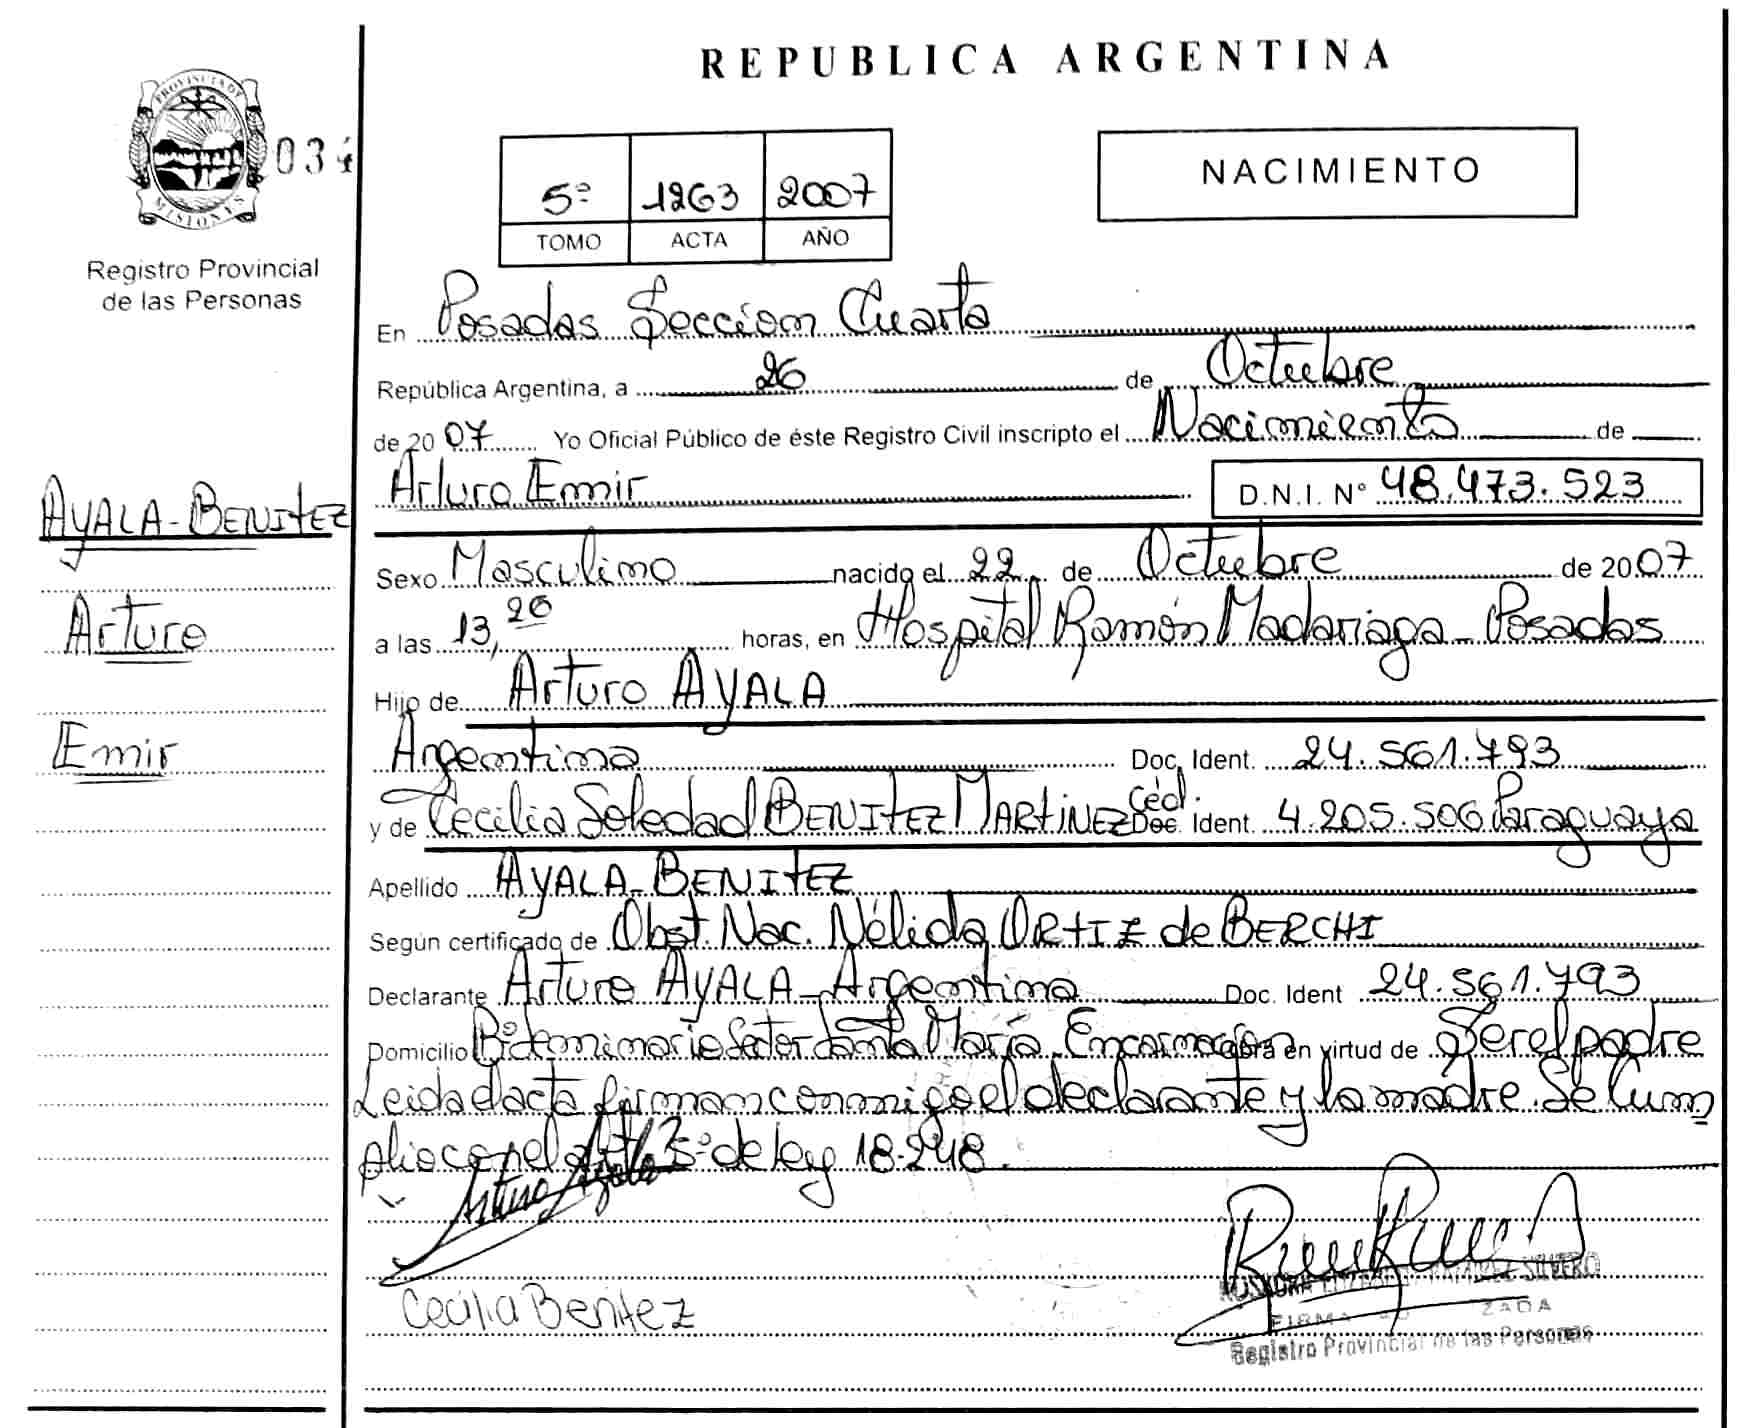 REPUBLICA ARGENTINA
PROVINCIA DE
MISIONES
034
Registro Provincial
de las Personas
5º 1263 2007
TOMO ACTA AÑO
NACIMIENTO
En Posadas Sección Cuarta
República Argentina, a 26 de Octubre
de 2007 Yo Oficial Público de éste Registro Civil inscripto el Nacimiento de
Arturo Emir D.N.I. Nº 48.473.523
AYALA-BENITEZ
Arturo
Emir
Sexo Masculino nacido el 22 de Octubre de 2007
a las 13,20 horas, en Hospital Ramón Madariaga - Posadas
Hijo de Arturo AYALA
Argentino Doc. Ident. 24.561.793
y de Cecilia Soledad BENITEZ MARTINEZ Céd. Doc. Ident. 4.205.506 Paraguaya
Apellido AYALA-BENITEZ
Según certificado de Obst. Nac. Nélida ORTIZ de BERCHI
Declarante Arturo AYALA - Argentino Doc. Ident 24.561.793
Domicilio Sector Santa María, Encarnación Obra en virtud de Ser el padre
Leida el acta firman conmigo el declarante y la madre. Se Cum
plio con el Art 5º de ley 18.248.
Arturo Ayala
Cecilia Benitez
RAMIREZ SILVERO
FIRMA
Registro Provincial de las Personas